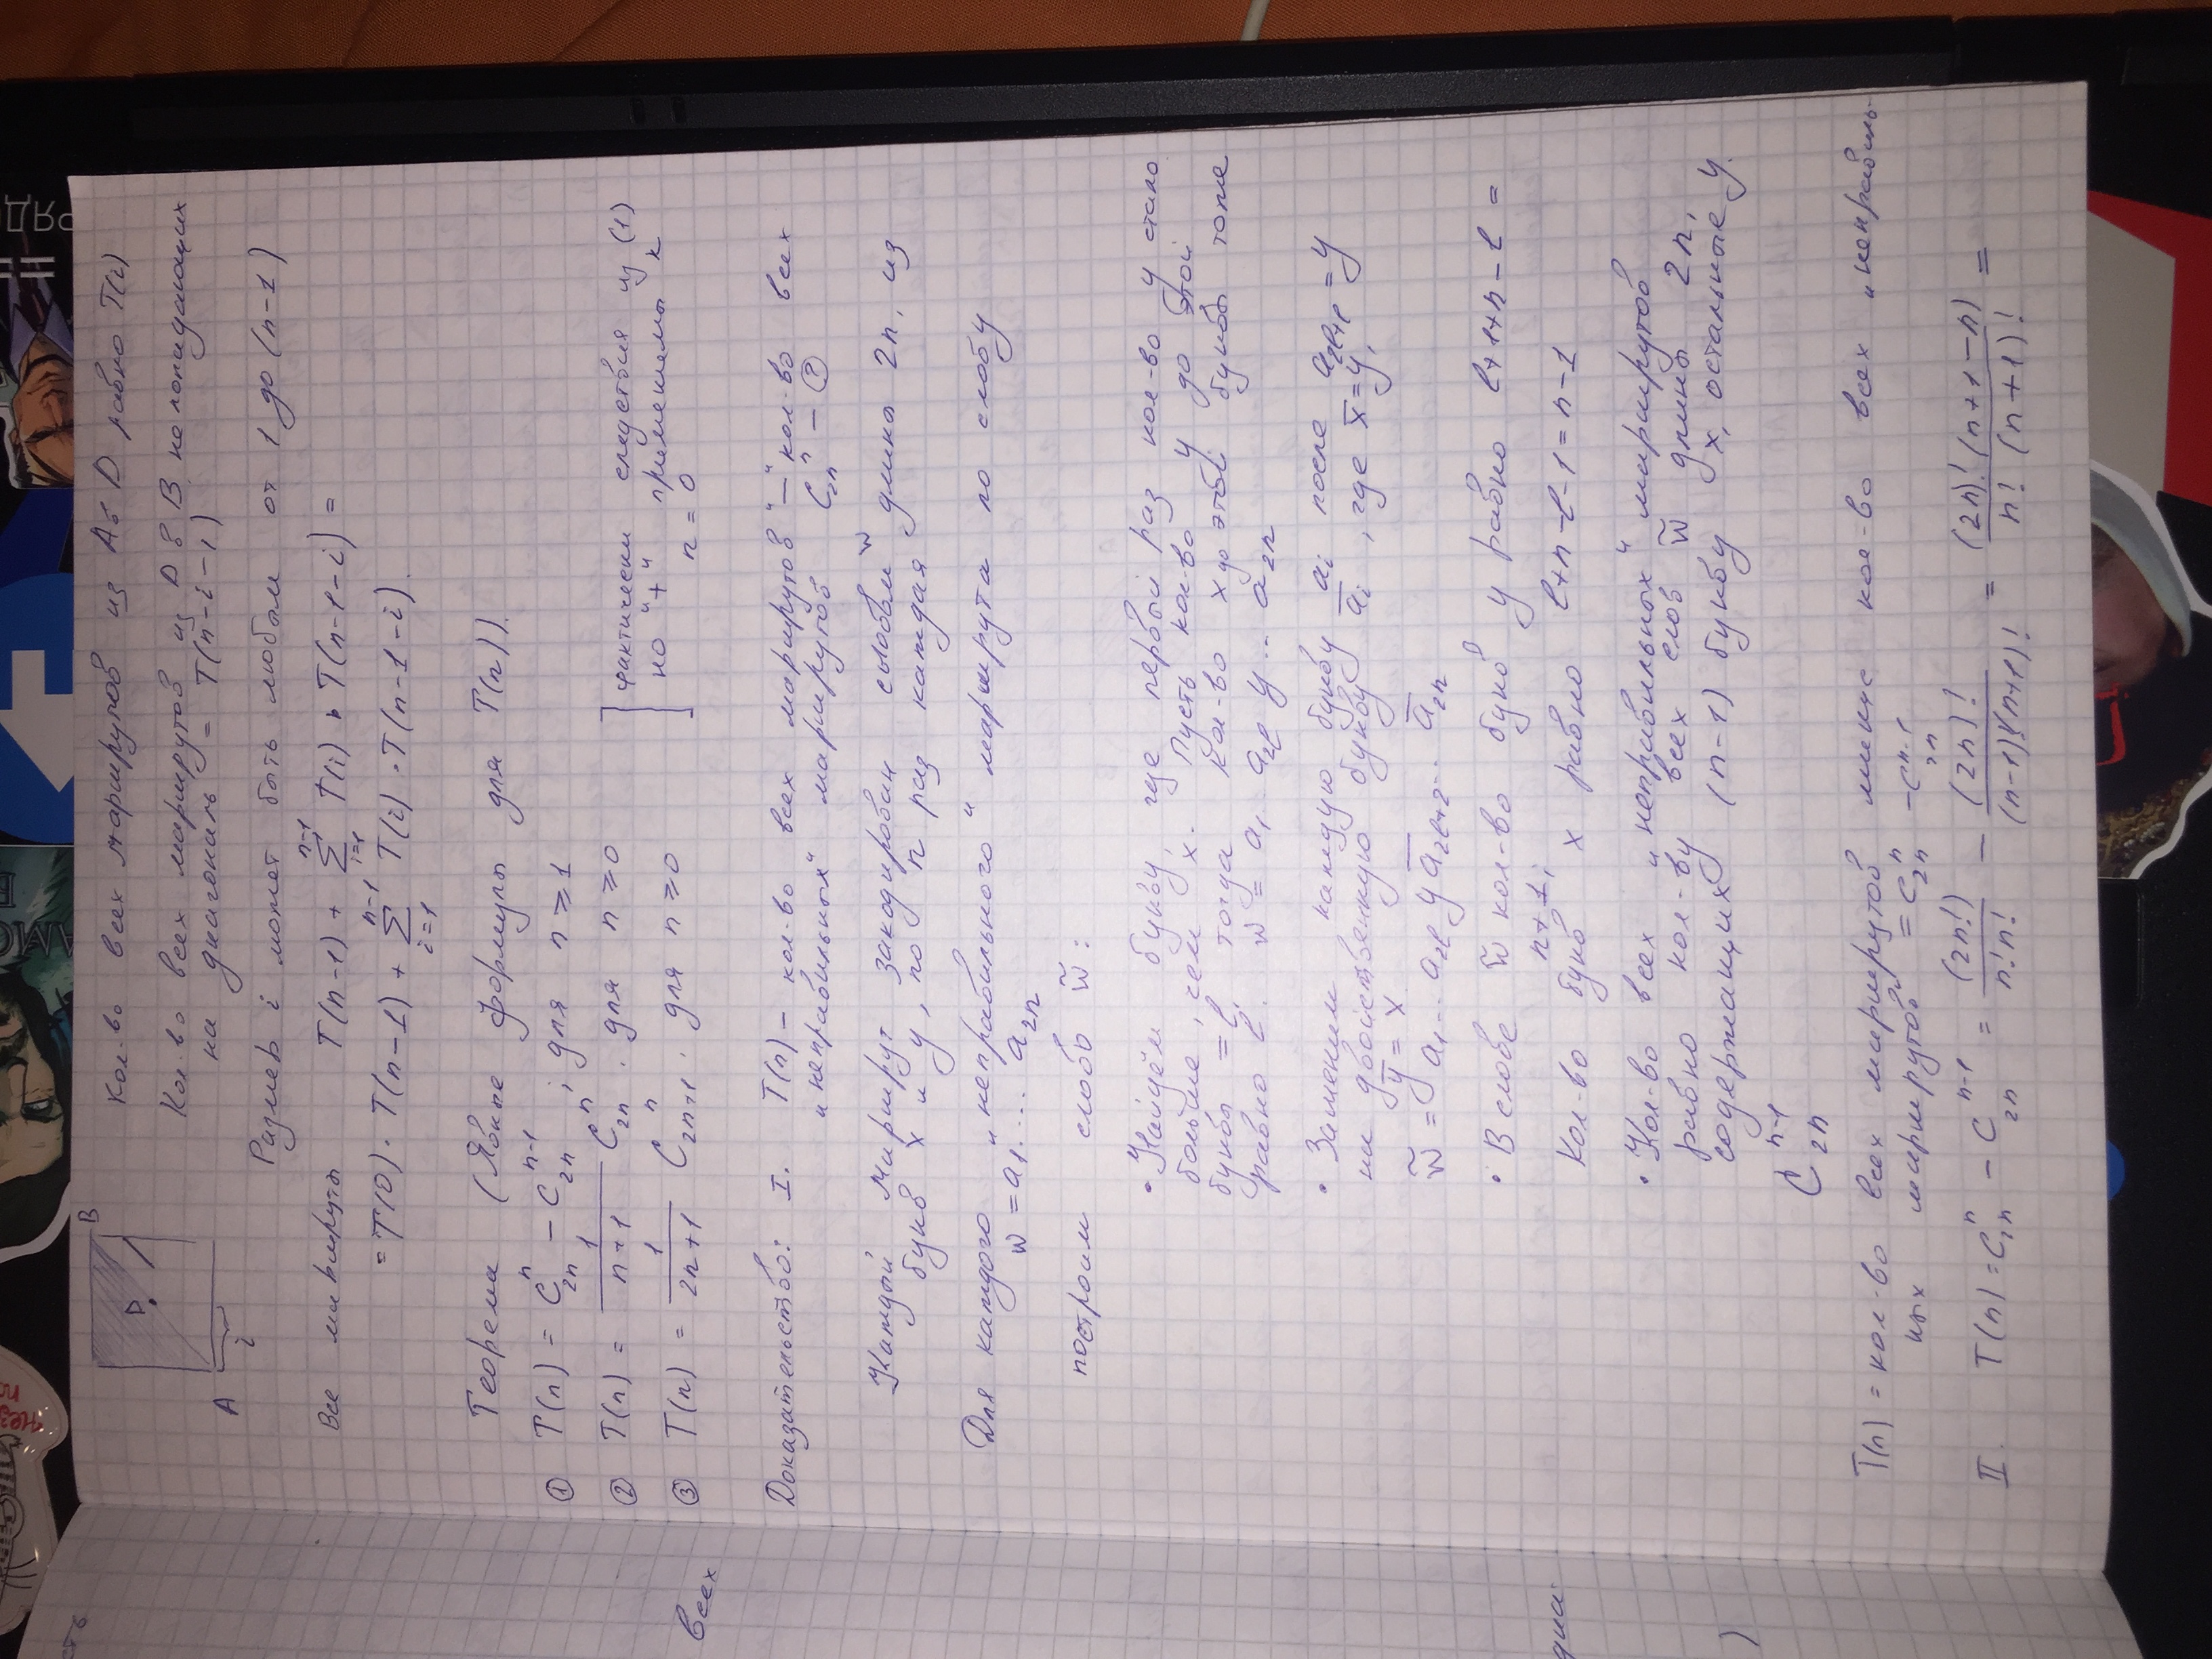 B
D
A
i
Кол-во всех маршрутов из A в D равно T(i)
Кол-во всех маршрутов из D в B не попадающих
на диагональ = T(n-i-1)
Размер i может быть любым от 1 до (n-1)
Все маршруты T(n-1) + \sum_{i=1}^{n-1} T(i) · T(n-1-i) =
= T(0) · T(n-1) + \sum_{i=1}^{n-1} T(i) · T(n-1-i).
Теорема (Явные формулы для T(n)).
① T(n) = C_{2n}^{n} - C_{2n}^{n-1}; для n ≥ 1
② T(n) = \frac{1}{n+1} C_{2n}^{n}. для n ≥ 0
③ T(n) = \frac{1}{2n+1} C_{2n+1}^{n}. для n ≥ 0
фактически следствия из (1)
но "+" применимы к
n = 0
Доказательство: I. T(n) - кол-во всех маршрутов "—" кол-во всех
„неправильных" маршрутов C_{2n}^{n} - ?
Каждый маршрут закодирован словом w длины 2n, из
букв x и y, по n раз каждая
Для каждого „неправильного" маршрута по слову
w = a_1.... a_{2n}
построим слово \tilde{w}:
• Найдём букву, где первый раз кол-во y стало
больше, чем x. Пусть кол-во y до этой
буквы = l, тогда кол-во x до этой буквы тоже
равно l. w = a_1.. a_{2l} y .. a_{2n}
• Заменим каждую букву a_i после a_{2l+1} = y
на двойственную букву \bar{a}_i, где \bar{x} = y,
\bar{y} = x
\tilde{w} = a_1... a_{2l} y \bar{a}_{2l+2}... \bar{a}_{2n}
• В слове \tilde{w} кол-во букв y равно l+1+n-l =
n+1;
Кол-во букв x равно l+n-l-1 = n-1
• Кол-во всех „неправильных" маршрутов
равно кол-ву всех слов \tilde{w} длины 2n,
содержащих (n-1) букву x, остальные y.
C_{2n}^{n-1}
T(n) = кол-во всех маршрутов минус кол-во всех „неправиль-
ных маршрутов" = C_{2n}^{n} - C_{2n}^{n-1}
II. T(n) = C_{2n}^{n} - C_{2n}^{n-1} = \frac{(2n!)}{n!n!} - \frac{(2n)!}{(n-1)!(n+1)!} = \frac{(2n)!(n+1-n)}{n!(n+1)!} =
всех
диа-
)